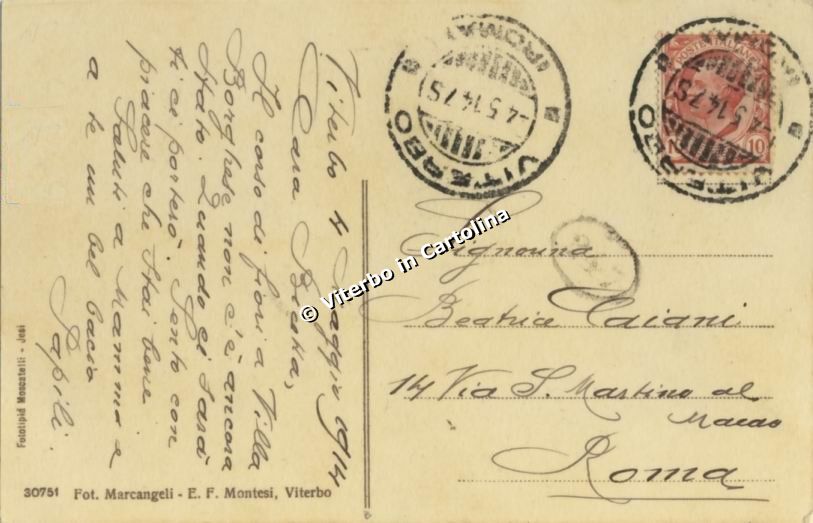 Viterbo 4 Maggio 1914
Cara Beata,
Il corso di fiori a Villa
Borghese non c'è ancora
stato. Quando ci sarà
ti ci porterò. Sento con
piacere che stai bene
Saluti a Mamma e
a te un bel bacio
Papili
VITERBO
(ROMA)
-4.5.14.7S
VITERBO
(ROMA)
-4.5.14.7S
POSTE ITALIANE
10
Signorina
Beatrice Caiani
14 Via S. Martino al
Macao
Roma
© Viterbo in Cartolina
Fototipia Moscatelli - Jesi
30751 Fot. Marcangeli - E. F. Montesi, Viterbo